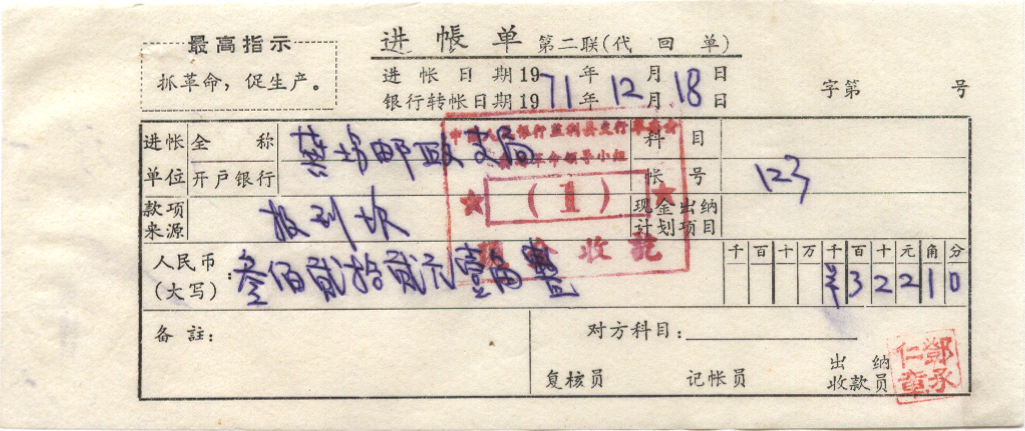 最高指示
抓革命，促生产。
进帐单 第二联(代回单)
进帐日期1971年12月18日
银行转帐日期1971年12月18日
字第 号
进帐单位 全称 邮政支局 科目
开户银行 帐号 123
款项来源 现金出纳计划项目
中国人民银行监利县支行革委会
革命领导小组
★(1)★
现金收讫
人民币(大写): 叁佰贰拾贰元壹角 千百十万千百十元角分
¥32210
备註: 对方科目:
复核员 记帐员 出纳收款员
邓承仁章